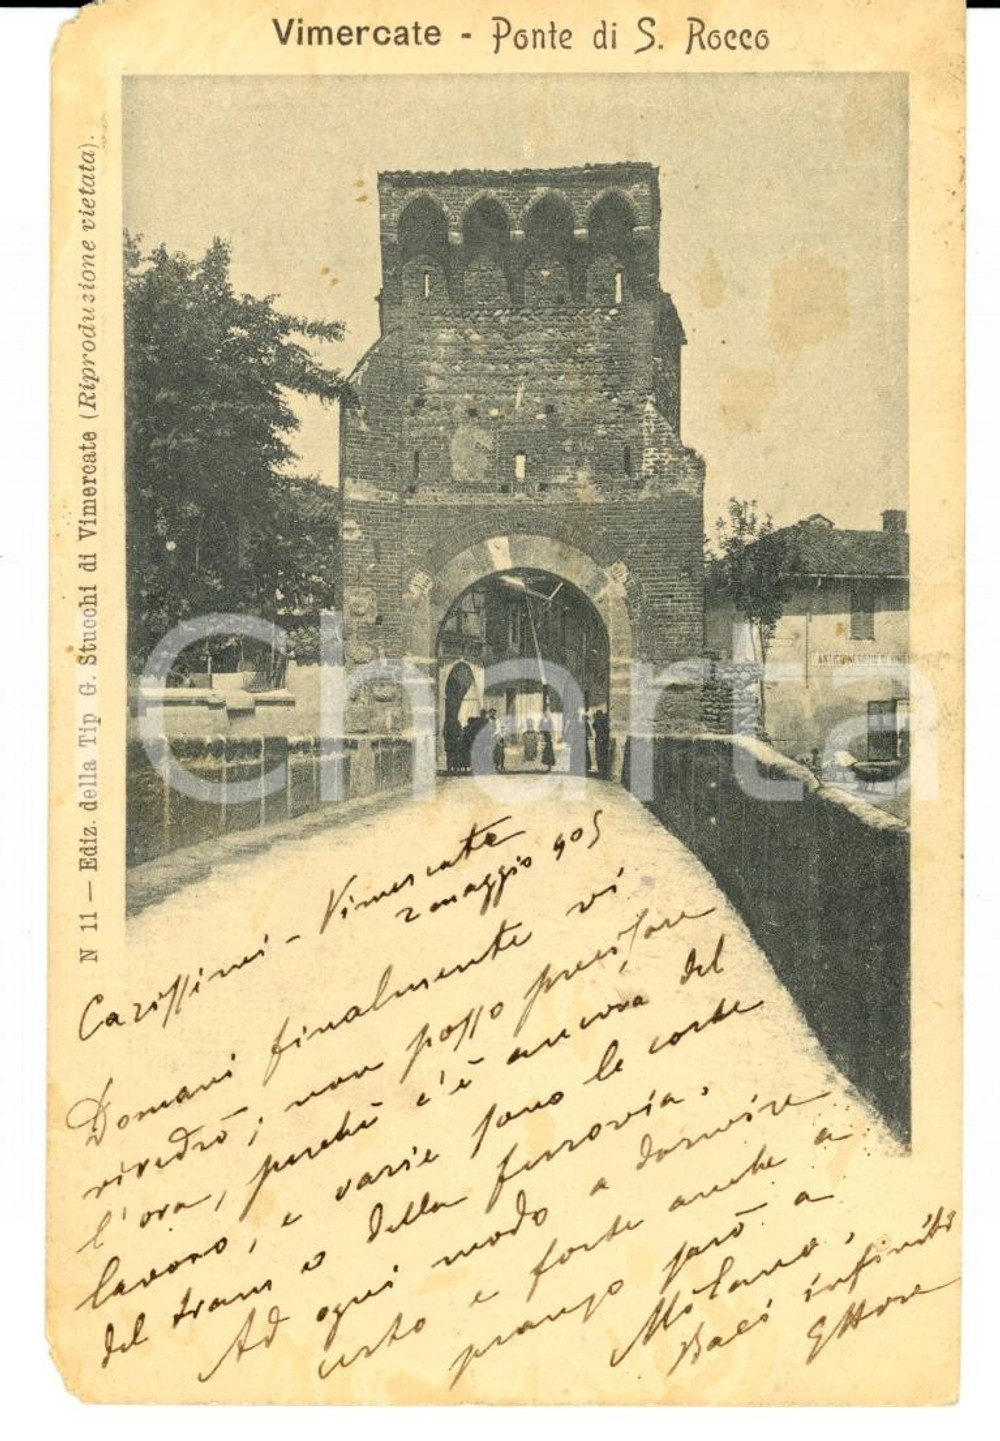 Vimercate - Ponte di S. Rocco
N 11 — Ediz. della Tip G. Stucchi di Vimercate (Riproduzione vietata).
ANTICO NEGOZIO DI VINO
Charta
Carissimi - Vimercate
2 maggio 905
Domani finalmente vi
rivedrò; non posso precisare
l'ora, perchè c'è ancora del
lavoro, e varie sono le corse
del tram o della ferrovia.
Ad ogni modo a dormire
certo e forse anche a
pranzo sarò a
Milano.
Baci infiniti
Ettore